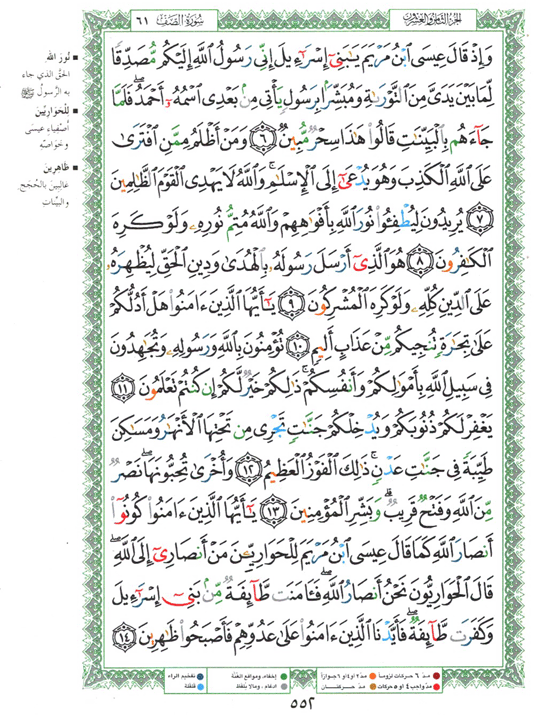 الجزء الثامن والعشرون
سورة الصف ٦١
وَإِذْ قَالَ عِيسَى ٱبْنُ مَرْيَمَ يَـٰبَنِىٓ إِسْرَٰٓءِيلَ إِنِّى رَسُولُ ٱللَّهِ إِلَيْكُم مُّصَدِّقًا
لِّمَا بَيْنَ يَدَىَّ مِنَ ٱلتَّوْرَىٰةِ وَمُبَشِّرًۢا بِرَسُولٍ يَأْتِى مِنۢ بَعْدِى ٱسْمُهُۥٓ أَحْمَدُ ۖ فَلَمَّا
جَآءَهُم بِٱلْبَيِّنَـٰتِ قَالُوا۟ هَـٰذَا سِحْرٌ مُّبِينٌ ٦ وَمَنْ أَظْلَمُ مِمَّنِ ٱفْتَرَىٰ
عَلَى ٱللَّهِ ٱلْكَذِبَ وَهُوَ يُدْعَىٰٓ إِلَى ٱلْإِسْلَـٰمِ ۚ وَٱللَّهُ لَا يَهْدِى ٱلْقَوْمَ ٱلظَّـٰلِمِينَ
٧ يُرِيدُونَ لِيُطْفِـُٔوا۟ نُورَ ٱللَّهِ بِأَفْوَٰهِهِمْ وَٱللَّهُ مُتِمُّ نُورِهِۦ وَلَوْ كَرِهَ
ٱلْكَـٰفِرُونَ ٨ هُوَ ٱلَّذِىٓ أَرْسَلَ رَسُولَهُۥ بِٱلْهُدَىٰ وَدِينِ ٱلْحَقِّ لِيُظْهِرَهُۥ
عَلَى ٱلدِّينِ كُلِّهِۦ وَلَوْ كَرِهَ ٱلْمُشْرِكُونَ ٩ يَـٰٓأَيُّهَا ٱلَّذِينَ ءَامَنُوا۟ هَلْ أَدُلُّكُمْ
عَلَىٰ تِجَـٰرَةٍ تُنجِيكُم مِّنْ عَذَابٍ أَلِيمٍ ١٠ تُؤْمِنُونَ بِٱللَّهِ وَرَسُولِهِۦ وَتُجَـٰهِدُونَ
فِى سَبِيلِ ٱللَّهِ بِأَمْوَٰلِكُمْ وَأَنفُسِكُمْ ۚ ذَٰلِكُمْ خَيْرٌ لَّكُمْ إِن كُنتُمْ تَعْلَمُونَ ١١
يَغْفِرْ لَكُمْ ذُنُوبَكُمْ وَيُدْخِلْكُمْ جَنَّـٰتٍ تَجْرِى مِن تَحْتِهَا ٱلْأَنْهَـٰرُ وَمَسَـٰكِنَ
طَيِّبَةً فِى جَنَّـٰتِ عَدْنٍ ۚ ذَٰلِكَ ٱلْفَوْزُ ٱلْعَظِيمُ ١٢ وَأُخْرَىٰ تُحِبُّونَهَا ۖ نَصْرٌ
مِّنَ ٱللَّهِ وَفَتْحٌ قَرِيبٌ ۗ وَبَشِّرِ ٱلْمُؤْمِنِينَ ١٣ يَـٰٓأَيُّهَا ٱلَّذِينَ ءَامَنُوا۟ كُونُوٓا۟
أَنصَارَ ٱللَّهِ كَمَا قَالَ عِيسَى ٱبْنُ مَرْيَمَ لِلْحَوَارِيِّـۧنَ مَنْ أَنصَارِىٓ إِلَى ٱللَّهِ ۖ
قَالَ ٱلْحَوَارِيُّونَ نَحْنُ أَنصَارُ ٱللَّهِ ۖ فَـَٔامَنَت طَّآئِفَةٌ مِّنۢ بَنِىٓ إِسْرَٰٓءِيلَ
وَكَفَرَت طَّآئِفَةٌ ۖ فَأَيَّدْنَا ٱلَّذِينَ ءَامَنُوا۟ عَلَىٰ عَدُوِّهِمْ فَأَصْبَحُوا۟ ظَـٰهِرِينَ ١٤
■ نُورَ الله
الحقَّ الذي جاء
به الرَّسولُ ﷺ
■ لِلْحَوَارِيِّينَ
أصفياءِ عيسى
وخواصِّه
■ ظاهرين
غالبينَ بالحُجَجِ
والبيِّناتِ
مدّ ٦ حركات لزوماً مدّ ٢ أو ٤ أو ٦ جوازاً
مدّ واجب ٤ أو ٥ حركات مدّ حركتان
إخفاء، ومواقع الغنَّة
ادغام، ومالا يُلفظ
تفخيم الراء
قلقلة
٥٥٢